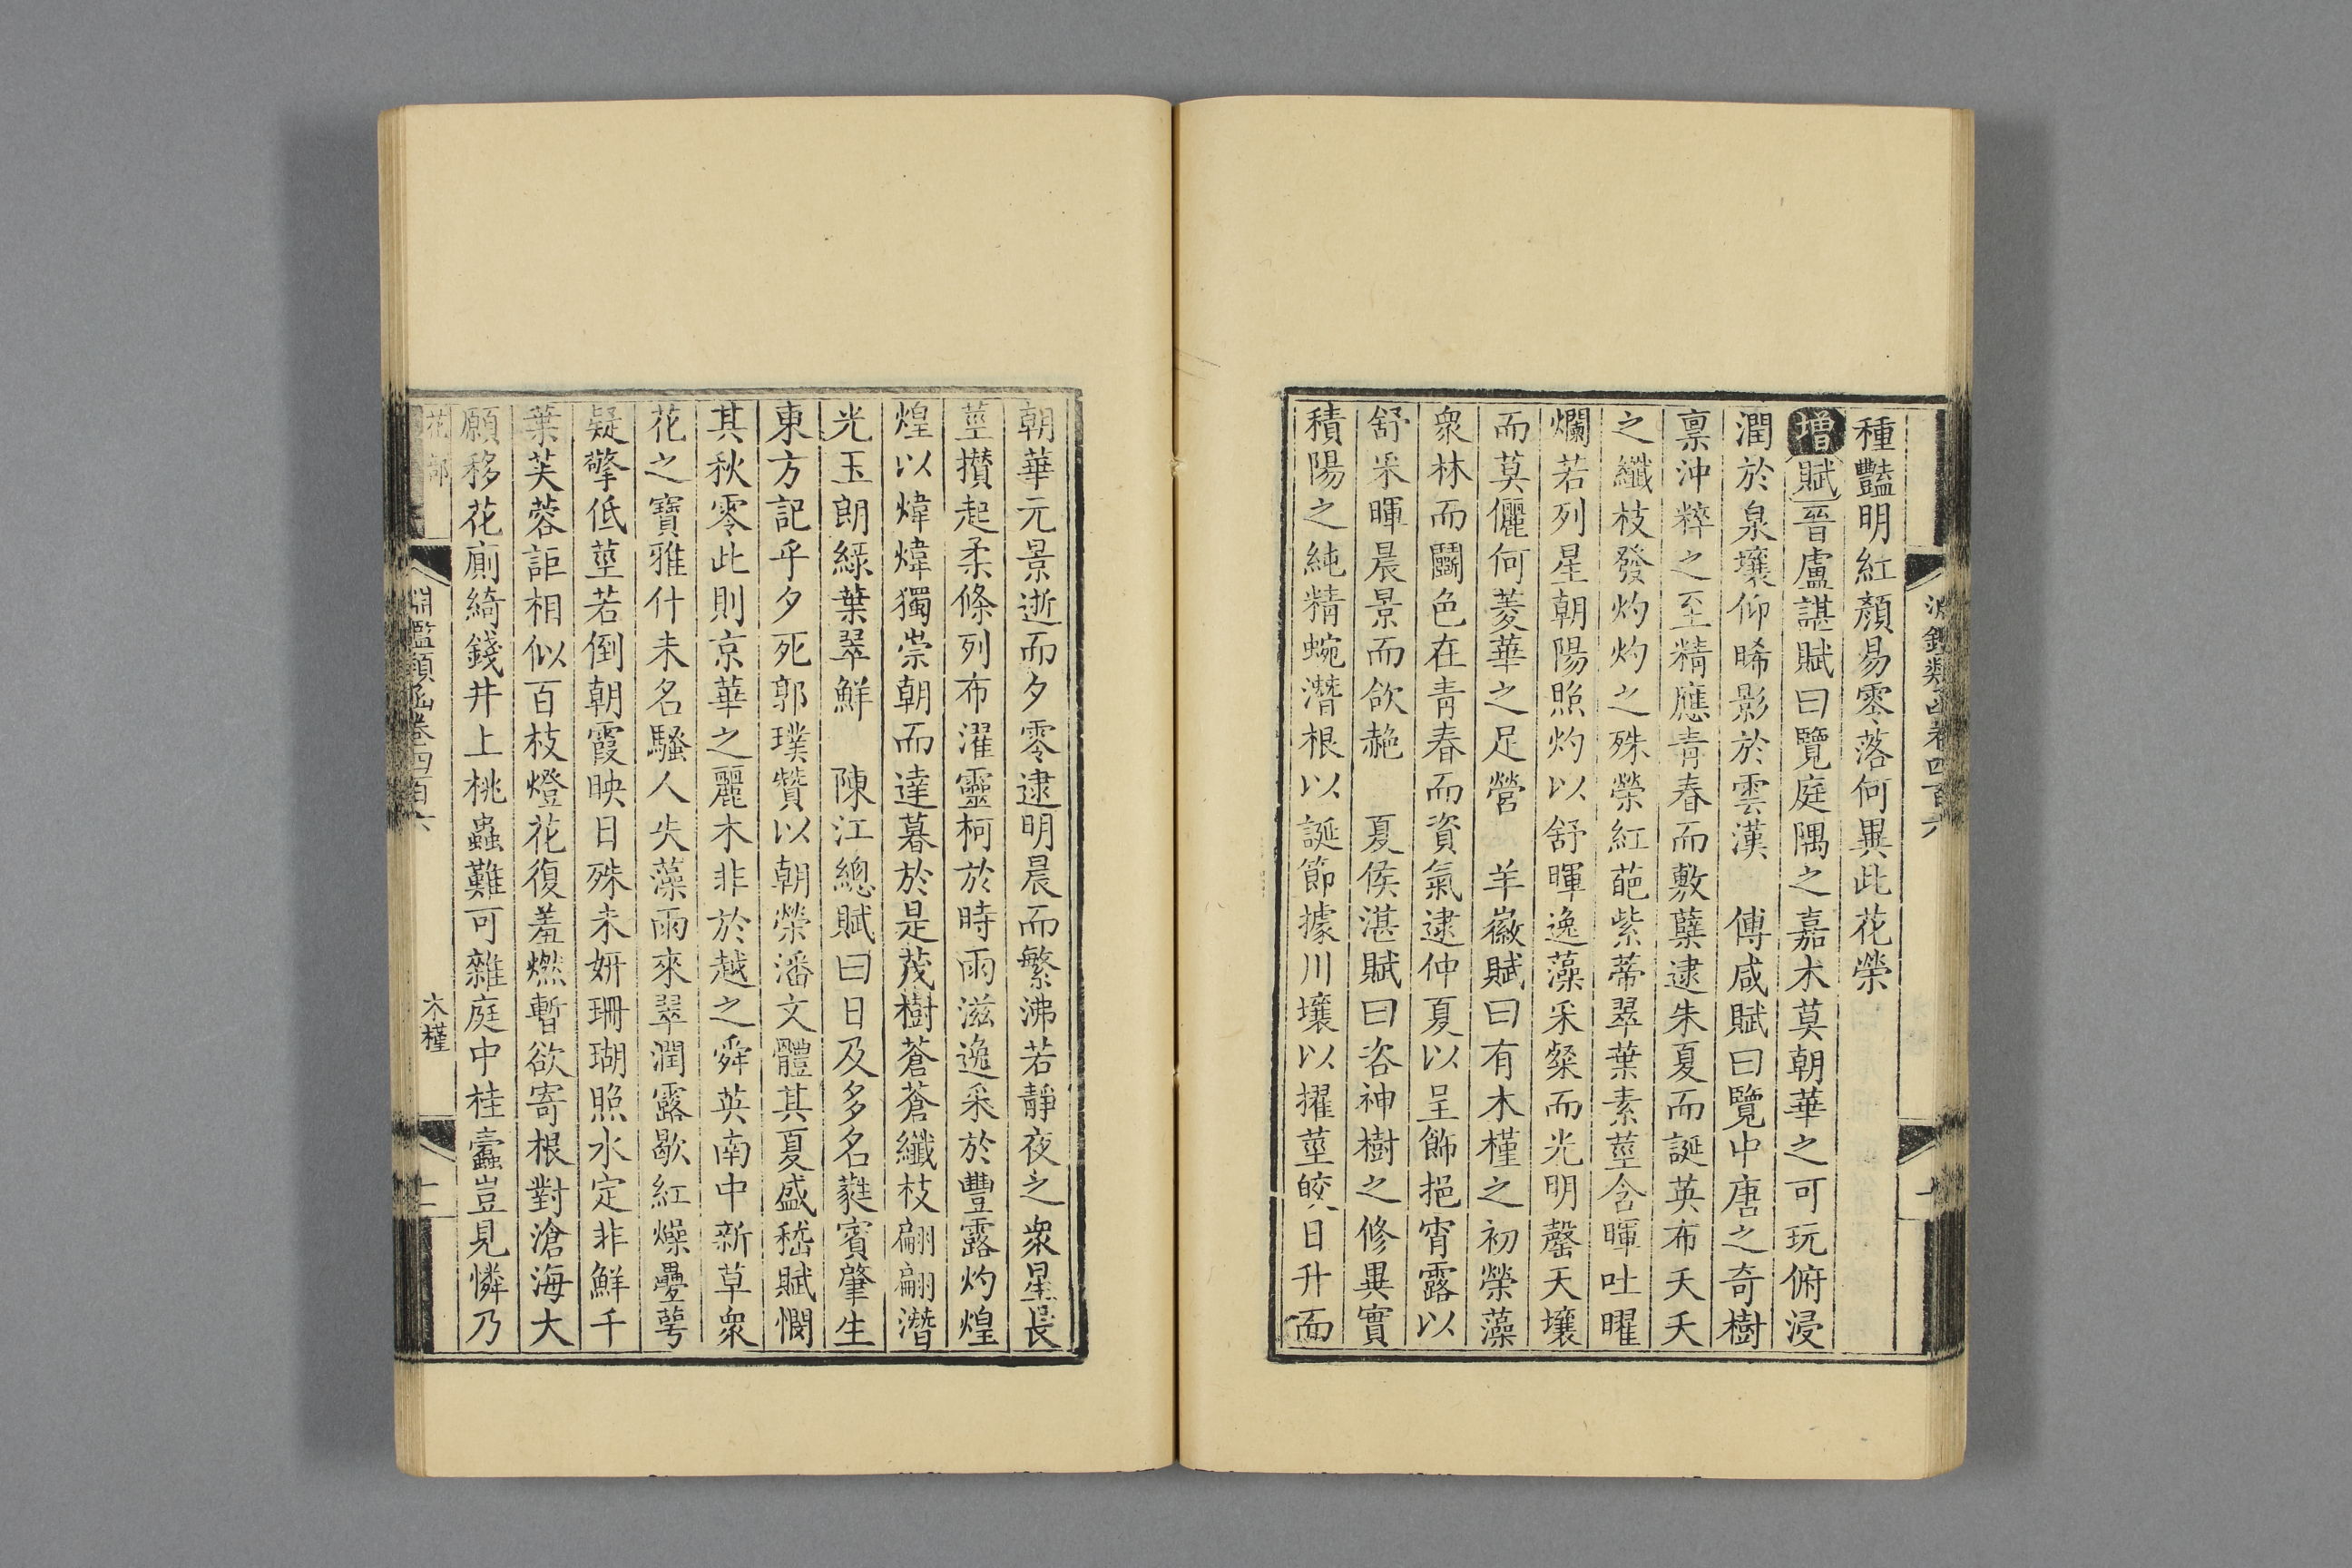 種豔明紅顏易零落何異此花榮
增賦晉盧諶賦曰覽庭隅之嘉木莫朝華之可玩俯浸
潤於泉壤仰晞影於雲漢　傅咸賦曰覽中唐之奇樹
禀沖粹之至精應青春而敷蘖逮朱夏而誕英布夭夭
之纖枝發灼灼之殊榮紅葩紫蒂翠葉素莖含暉吐曜
爛若列星朝陽照灼以舒暉逸藻采粲而光明罄天壤
而莫儷何菱華之足營　羊徽賦曰有木槿之初榮藻
衆林而鬬色在青春而資氣逮仲夏以呈飾挹宵露以
舒采暉晨景而欲赩　夏侯湛賦曰咨神樹之修異實
積陽之純精蜿潛根以誕節據川壤以擢莖皎日升而
朝華元景逝而夕零逮明晨而繁沸若靜夜之衆星長
莖攢起柔條列布濯靈柯於時雨滋逸采於豐露灼煌
煌以煒煒獨崇朝而達暮於是茂樹蒼蒼纖枝翩翩潛
光玉朗綠葉翠鮮　陳江總賦曰日及多名蕤賓肇生
東方記乎夕死郭璞贊以朝榮潘文體其夏盛嵇賦憫
其秋零此則京華之麗木非於越之舜英南中新草衆
花之寶雅什未名騷人失藻雨來翠潤露歇紅燥疊萼
疑擎低莖若倒朝霞映日殊未妍珊瑚照水定非鮮千
葉芙蓉詎相似百枝燈花復羞燃暫欲寄根對滄海大
願移花廁綺錢井上桃蟲難可雜庭中桂蠹豈見憐乃
花部
淵鑑類函卷四百六
木槿